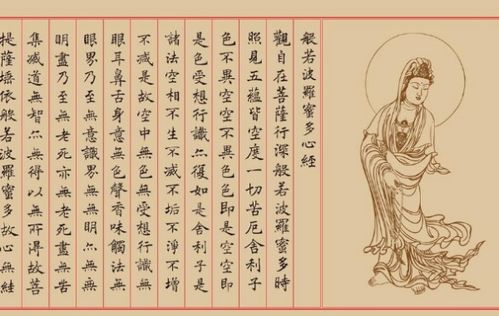 般若波羅蜜多心經
觀自在菩薩行深般若波羅蜜多時
照見五蘊皆空度一切苦厄舍利子
色不異空空不異色色即是空空即
是色受想行識亦復如是舍利子是
諸法空相不生不滅不垢不淨不增
不減是故空中無色無受想行識無
眼耳鼻舌身意無色聲香味觸法無
眼界乃至無意識界無無明亦無無
明盡乃至無老死亦無老死盡無苦
集滅道無智亦無得以無所得故菩
提薩埵依般若波羅蜜多故心無罣